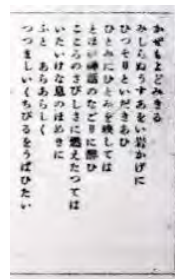 かぜもよどみきる
みしらぬうすあをい岩かげに
ひつそりといだきあひ
ひとみにひとみを映しては
とほい神話のなごりに酔ひ
こころのさびしさに燃えたつては
いたいけな息のほめきに
ふと あらあらしく
つつましいくちびるをうばひたい